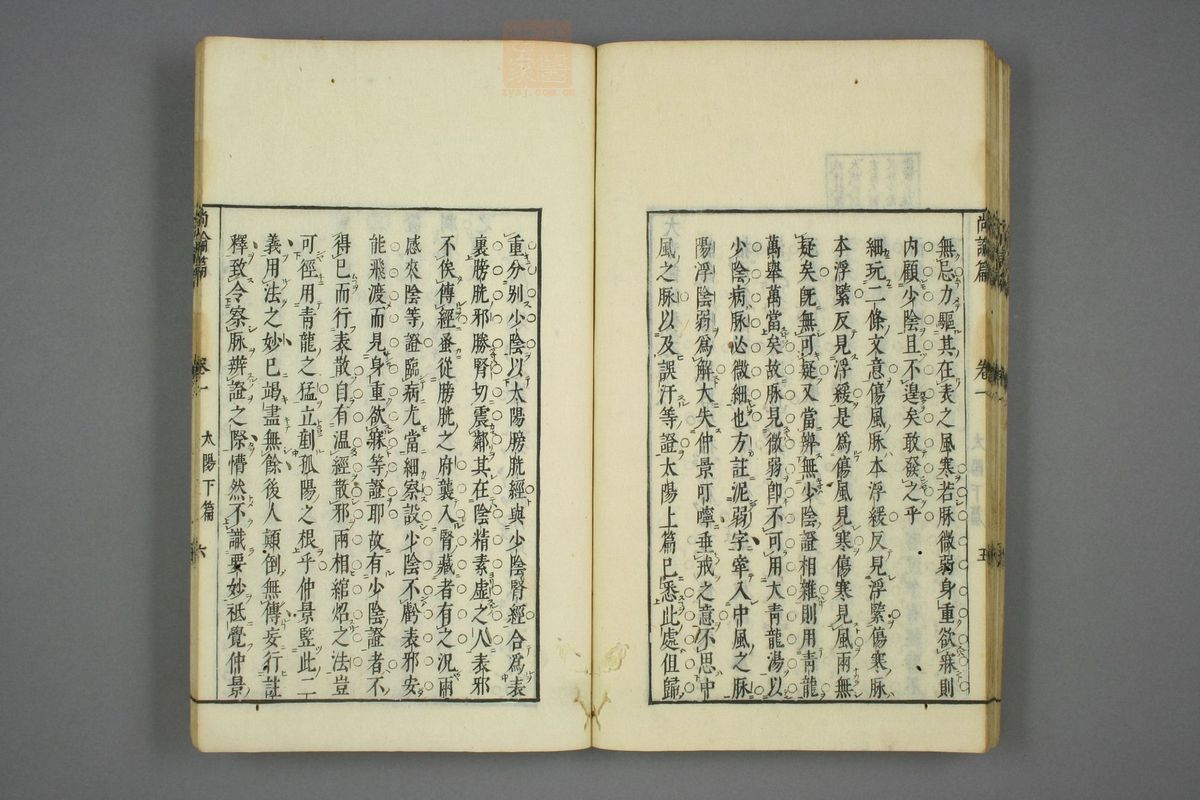 尚論篇
卷一
五
無忌力驅其在表之風寒若脉微弱身重欲寐則
内顧少陰且不遑矣敢發之乎
細玩二條文意傷風脉本浮緩反見浮緊傷寒脉
本浮緊反見浮緩是爲傷風見寒傷寒見風兩無
疑矣旣無可疑又當辨無少陰證相雜則用靑龍
萬舉萬當矣故脉見微弱卽不可用大靑龍湯以
少陰病脉必微細也方註泥弱字牽入中風之脉
陽浮陰弱爲解大失仲景叮嚀垂戒之意不思中
風之脉以及誤汗等證太陽上篇已悉此處但歸
重分别少陰以太陽膀胱經與少陰腎經合爲表
裏膀胱邪勝腎切震鄰其在陰精素虚之人表邪
不俟傳經蚤從膀胱之府襲入腎藏者有之况兩
感夾陰等證臨病尤當細察設少陰不虧表邪安
能飛渡而見身重欲寐等證耶故有少陰證者不
得已而行表散自有温經散邪兩相綰炤之法豈
可徑用靑龍之猛立剷孤陽之根乎仲景監此二
義用法之妙已竭盡無餘後人顛倒無傳妄行註
釋致令察脉辨證之際懵然不識要妙祇覺仲景
尚論篇
卷一
太陽下篇
六
zysj.com.cn